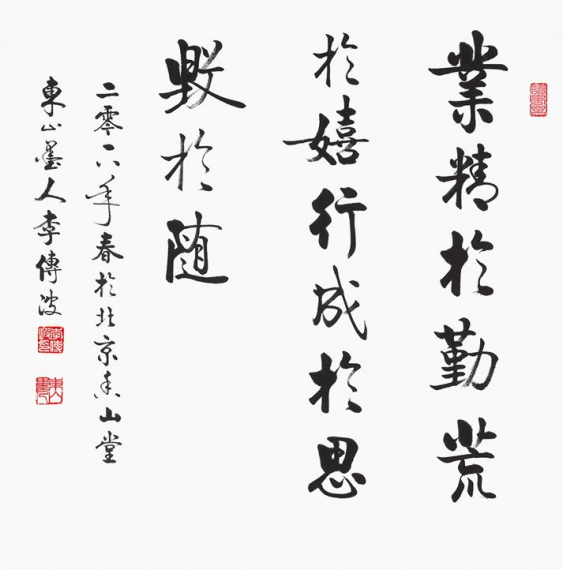 業精於勤荒
於嬉行成於思
毀於随
二零六年春於北京香山堂
東山墨人李傳波